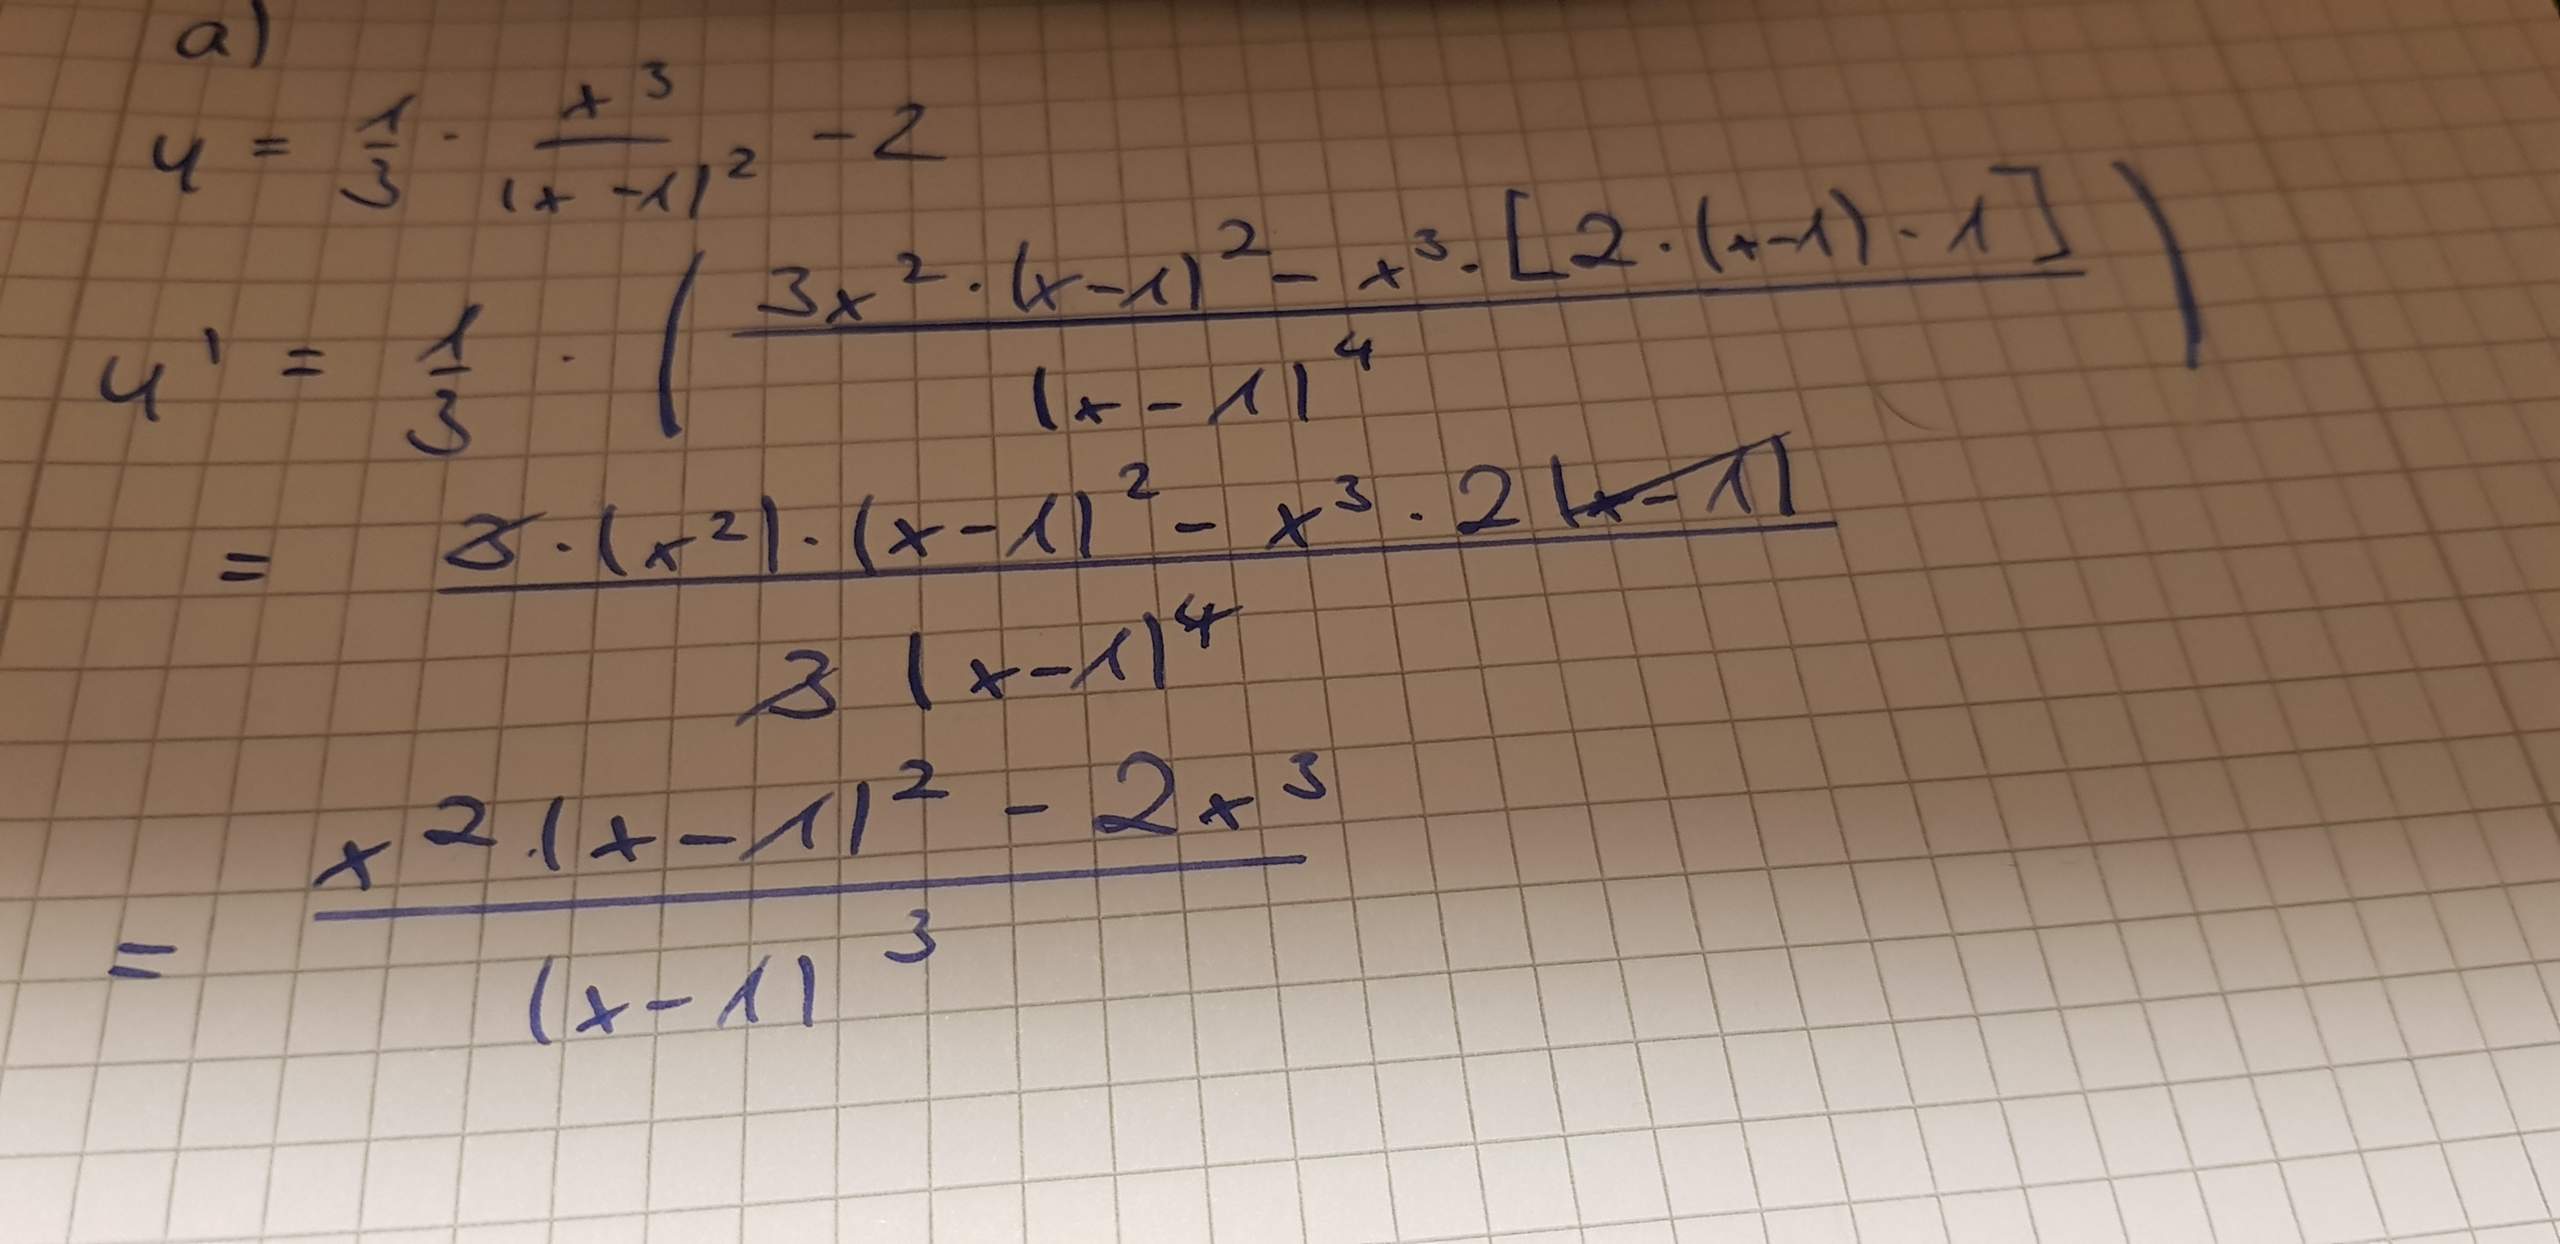 a)
y = 1/3 · x³/(x-1)² - 2
y' = 1/3 · ( (3x² · (x-1)² - x³ · [2 · (x-1) · 1]) / (x-1)⁴ )
= (3 · (x²) · (x-1)² - x³ · 2(x-1)) / (3(x-1)⁴)
= (x² · (x-1)² - 2x³) / (x-1)³